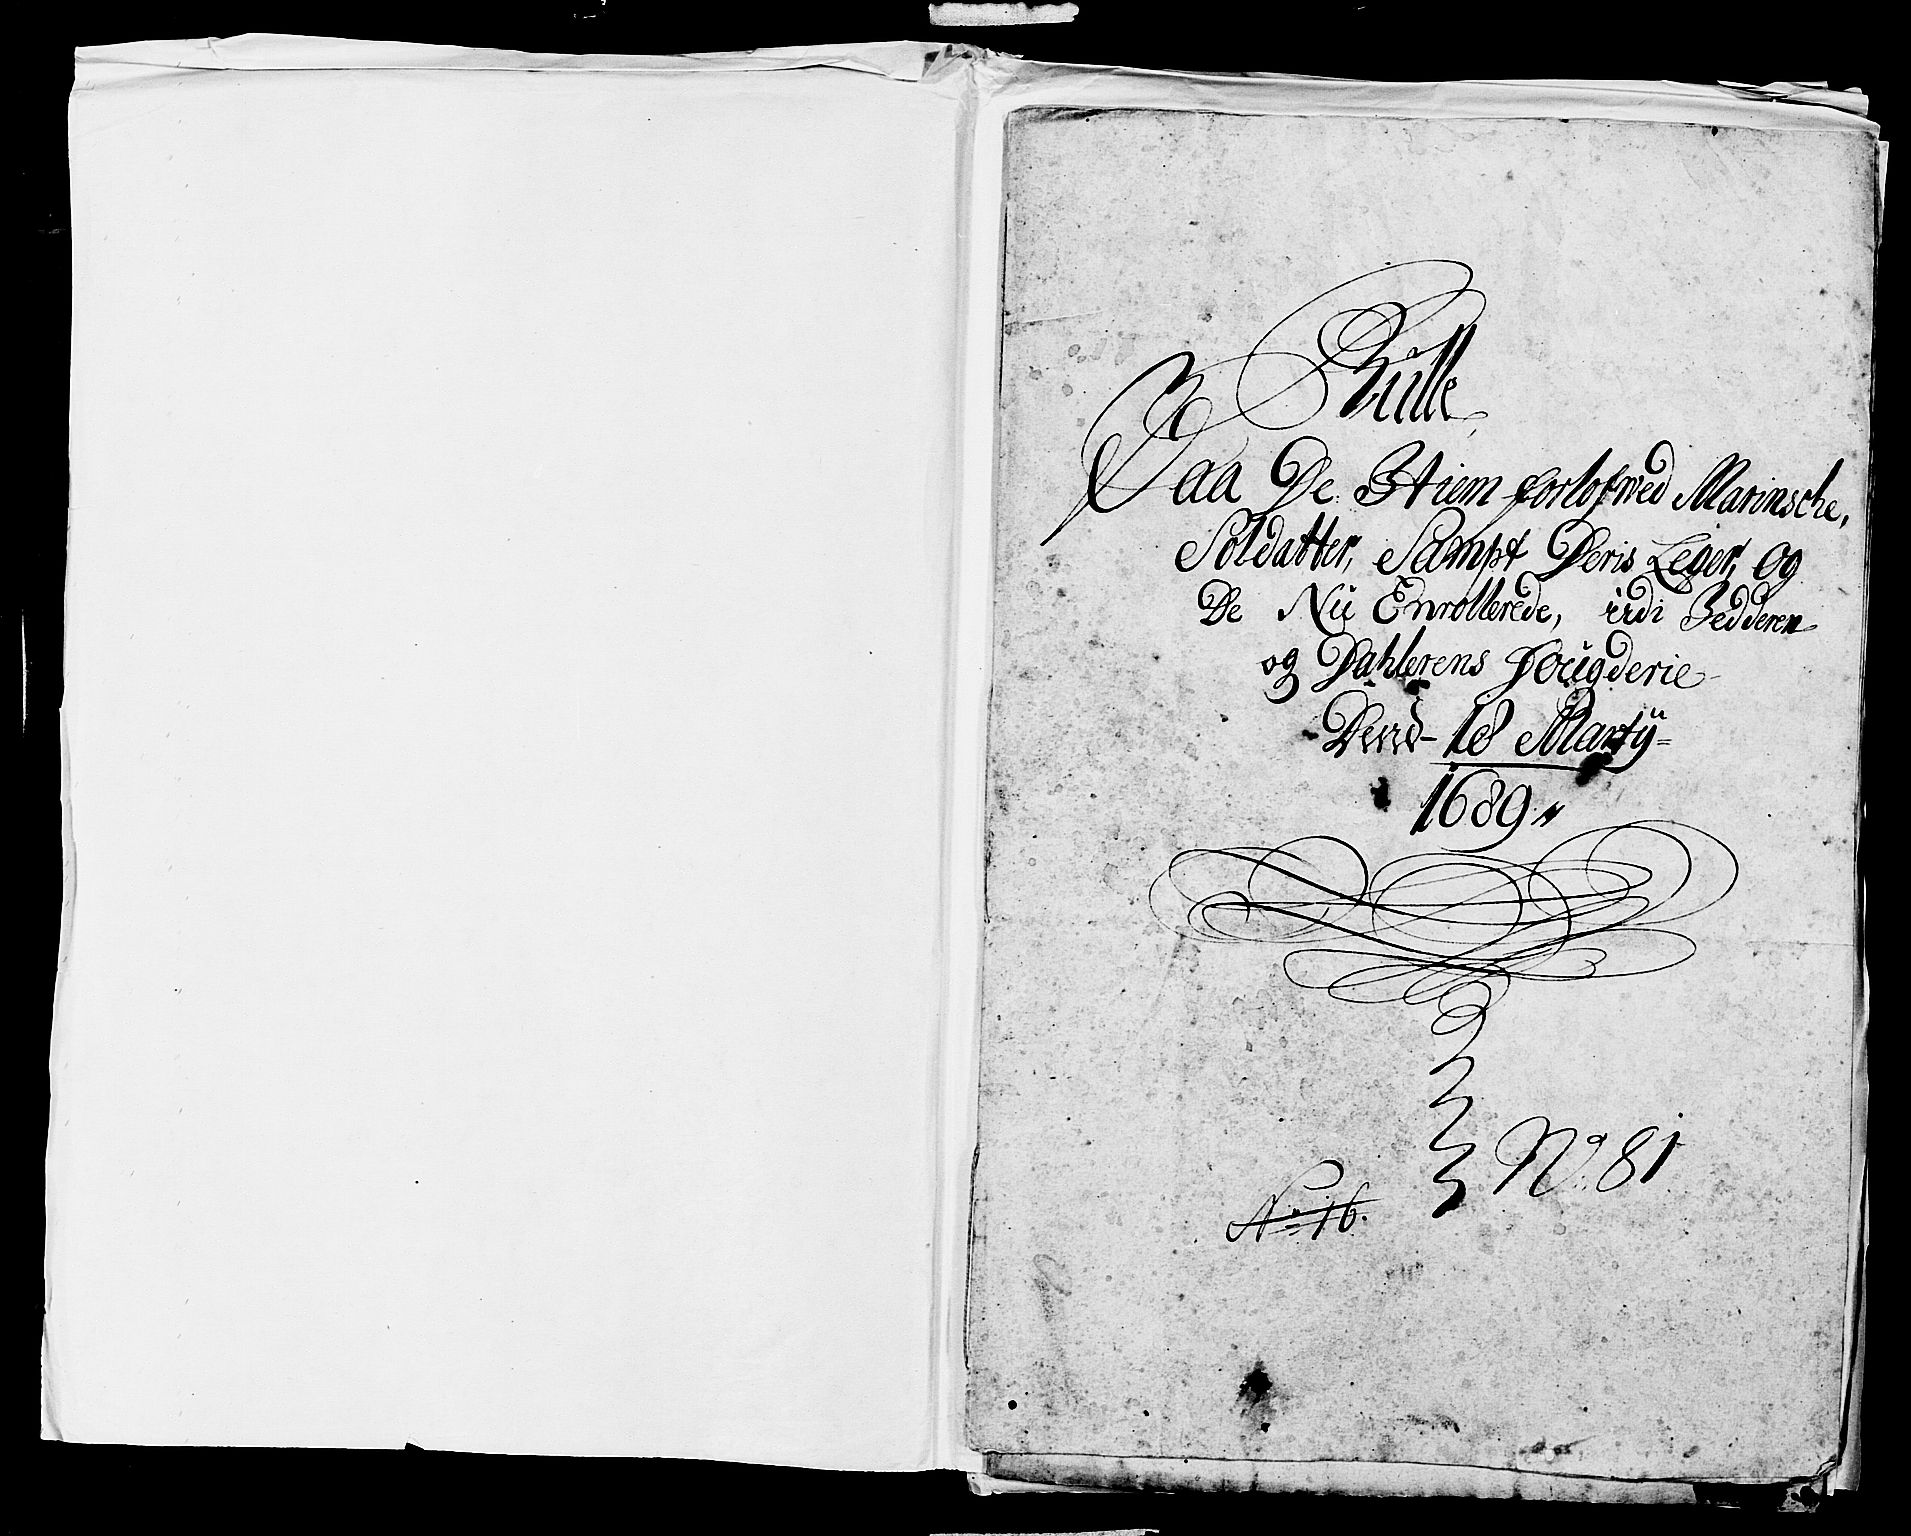 Rulle
Paa De Hiem forlofwed Marinsche,
Soldatter, Sampt Deris Leger, og
De Nu Enrollerede, udi Nedderen
og Dahlerens Fougderie
Dend 18 Martÿ
1689
No 81
No 16.